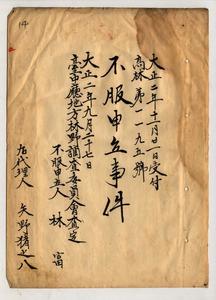 大正二年十一月廿一日受付
高林第一一九五號
不服申立事件
大正二年九月二十七日
臺中廳地方林野調査委員會査定
不服申立人 林
右代理人 矢野猪之八